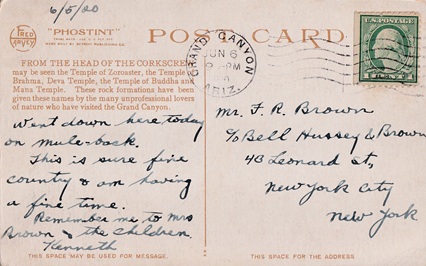 6/5/20
FRED HARVEY
"PHOSTINT"
POST CARD
GRAND CANYON
JUN 6
PM
ARIZ.
U.S. POSTAGE
FROM THE HEAD OF THE CORKSCREW
may be seen the Temple of Zoroaster, the Temple of
Brahma, Deva Temple, the Temple of Buddha and
Manu Temple. These rock formations have been
given these names by the many unprofessional lovers
of nature who have visited the Grand Canyon.
Went down here today
on mule-back.
This is sure fine
country & am having
a fine time.
Remember me to Mrs
Brown & the children.
Kenneth
Mr. F. R. Brown
c/o Bell Hussey & Brown
43 Leonard St.,
New York City
New York
THIS SPACE MAY BE USED FOR MESSAGE.
THIS SPACE IS FOR THE ADDRESS